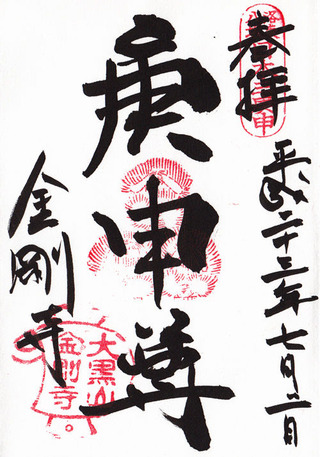 奉拝
平成二十三年七月二日
庚申尊
金剛寺
大黒山
金剛寺